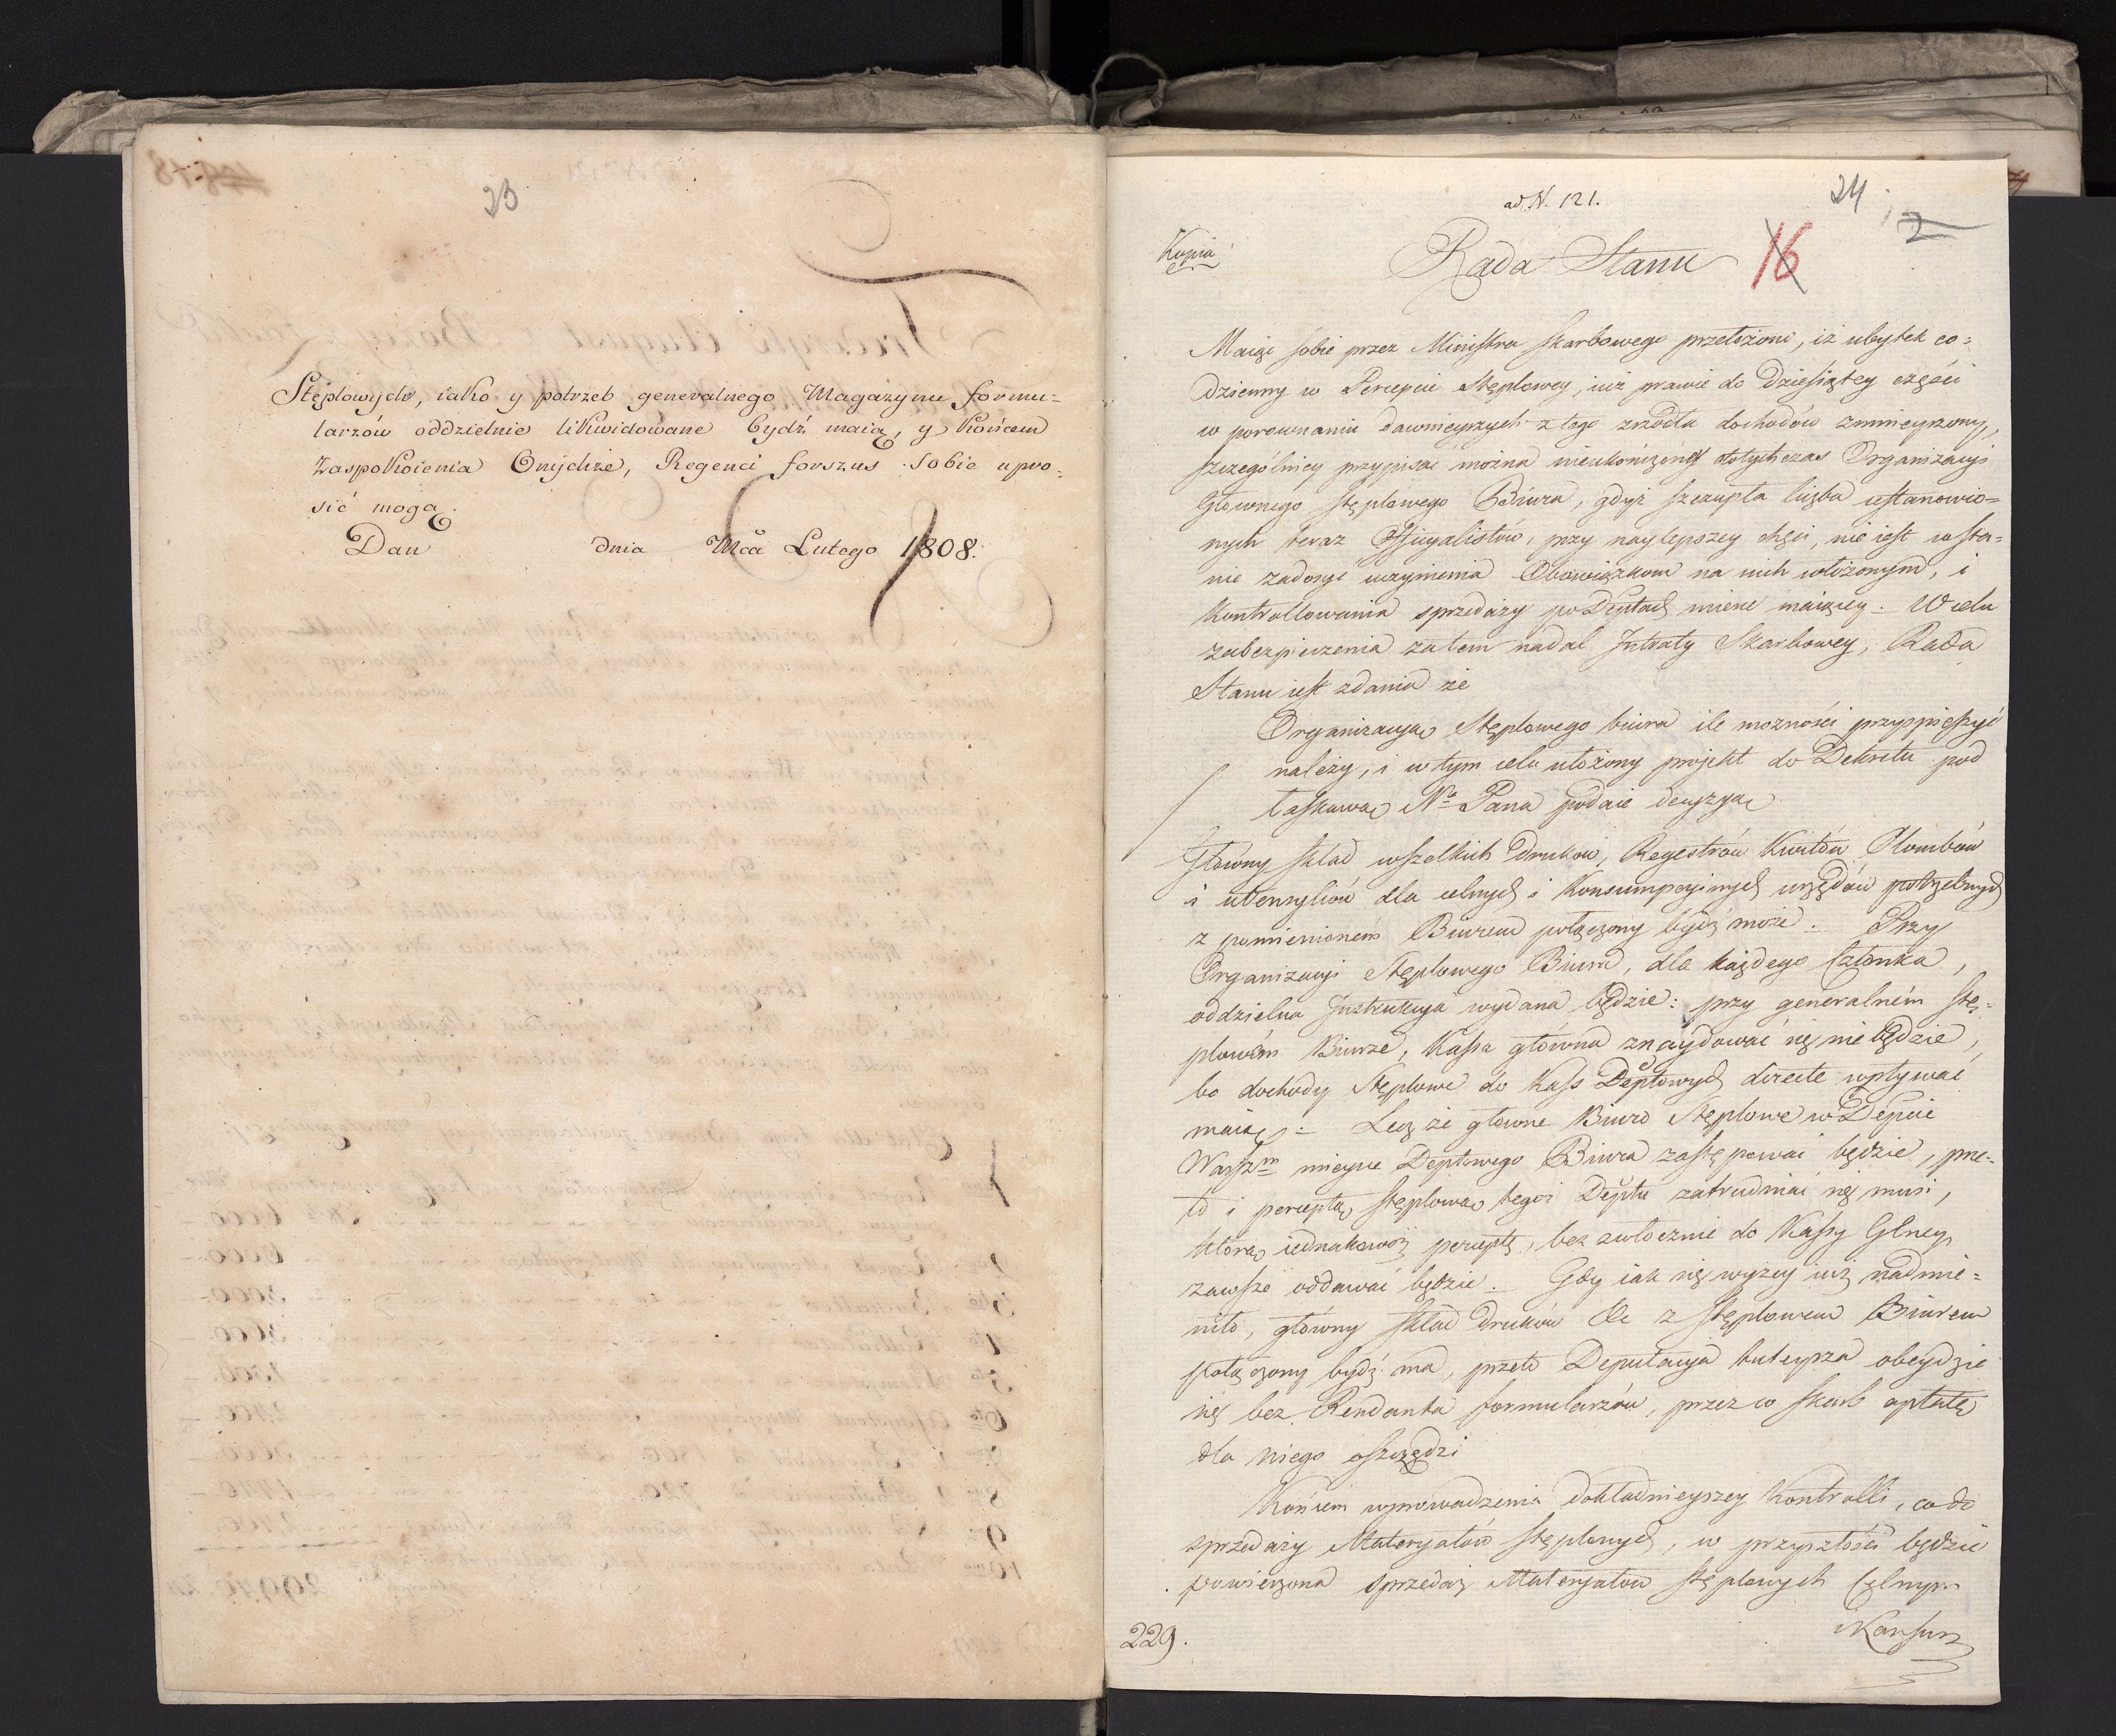 23
Stęplowych, iako y potrzeb generalnego Magazynu formu=
larzów oddzielnie likwidowane bydź maią, y końcem
Zaspokoienia Onychże, Regenci forszus sobie upro=
sić mogą.
Dan dnia Mca Lutego 1808.
ad N. 121.
24
2
Kopia
Rada Stanu
16
Maiąc sobie przez Ministra Skarbowego przełożone, iż ubytek co=
dzienny w Percepcie Stęplowey, iuż prawie do dziesiątey części
w porownaniu dawnieyszych z tego zrzodła dochodów zmnieyszony,
szczególniey przypisać można nieukończoney dotychczas Organizacyi
Głownego stęplowego Biura, gdyż szczupła liczba ustanowio=
nych teraz Officyalistów, przy naylepszey chęci, nie iest w sta=
nie zadosyć uczynienia Obowiązkom na nich włożonym, i
kontrollowania sprzedaży po Deptach mieć maiącey. W celu
zabezpieczenia zatem nadal Intraty Skarbowey, Rada
Stanu iest zdania że
Organizacyą Stęplowego biura ile możności przyspieszyć
należy, i w tym celu ułożony projekt do Dekretu pod
łaskawą No Pana podaie decyzyą
Główny skład wszelkich druków, Regestrów Kwitów Plombów
i utensyliów dla celnych i konsumpcyinych urzędów potrzebnych
z pomienionem Biurem połączony bydź może. Przy
Organizacyi Stęplowego Biura, dla każdego Członka,
oddzielna Instrukcya wydana będzie: przy generalném stę=
plowém Biurze, Kassa główna znaydować się nie będzie,
bo dochody Stęplowe do Kass Deptowych directe wpływać
maią. Lecz że głowne Biuro Stęplowe w Depcie
Warszm mieysce Deptowego Biura zastępować będzie, prze=
to i perceptą stęplową tegoż Deptu zatrudniać się musi,
którą iednakowoż perceptę, bez zwłocznie do Kassy Glney
zawsze oddawać będzie. Gdy iak się wyżey iuż nadmie=
niło, główny skład druków &c z stęplowem Biurem
połączony bydź ma, przeto Deputacya tuteysza obeydzie
się bez Rendanta formularzów, przez co skarb opłatę
dla niego oszczędzi
Końcem wprowadzenia dokładnieyszey kontrolli, co do
sprzedaży Materyałów stęplowych, w przyszłości będzie
powierzona sprzedaż Materyałow stęplowych Celnym
i Konsum
229.